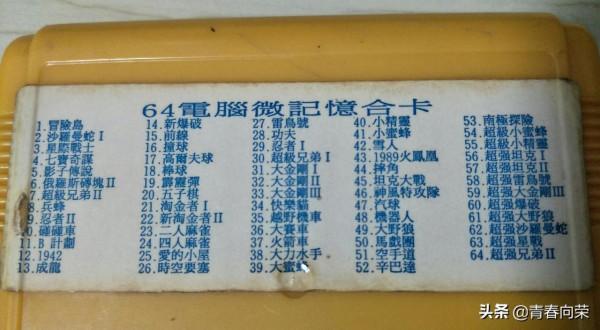 64電腦微記憶合卡
1.冒險島
2.沙羅曼蛇I
3.星際戰士
4.七寶奇謀
5.影子傳說
6.俄羅斯磚塊II
7.超級兄弟II
8.兵蜂
9.忍者II
10.碰碰車
11.B計劃
12.1942
13.成龍
14.新爆破
15.前線
16.撞球
17.高爾夫球
18.棒球
19.霹靂彈
20.五子棋
21.淘金者I
22.新淘金者II
23.二人麻雀
24.四人麻雀
25.愛的小屋
26.時空要塞
27.雷鳥號
28.功夫
29.忍者I
30.超級兄弟I
31.大金剛I
32.大金剛II
33.大金剛III
34.快樂貓
35.越野機車
36.大賽車
37.火箭車
38.大力水手
39.大蜜蜂
40.小精靈
41.小蜜蜂
42.雪人
43.1989火鳳凰
44.摔角
45.坦克大戰
46.坦克特攻隊
47.汽球
48.機器人
49.大野狼
50.馬戲團
51.空手道
52.辛巴達
53.南極探險
54.超級小蜜蜂
55.超級小精靈
56.超强坦克I
57.超强坦克II
58.超级雷鳥號
59.超强大金剛III
60.超强爆破
61.超强大野狼
62.超强沙羅曼蛇
63.超强星戰
64.超强兄弟II
头条 @青春向荣